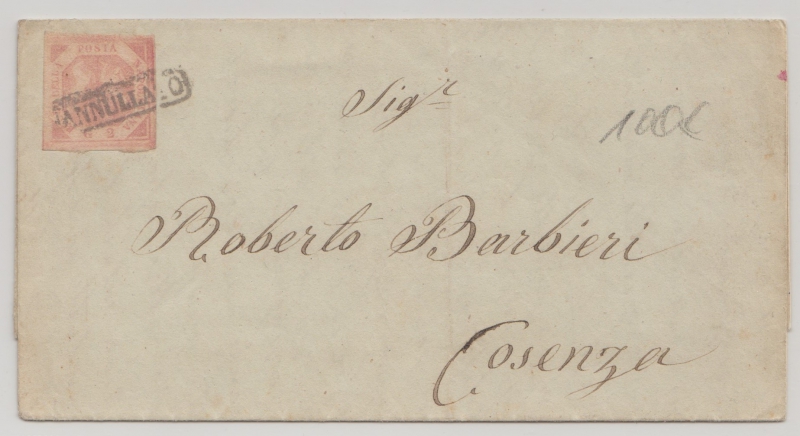 POSTA
ANNULLATO
G 2
Sigr
100€
Roberto Barbieri
Cosenza